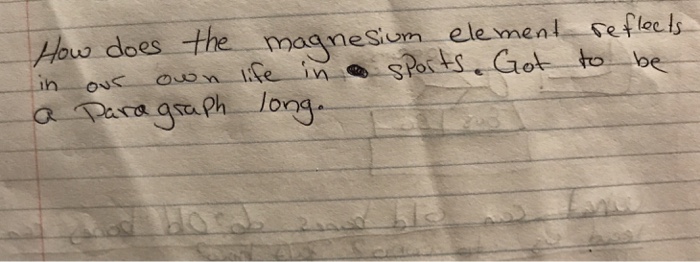 How does the magnesium element reflects
in our own life in sports. Got to be
a Paragraph long.